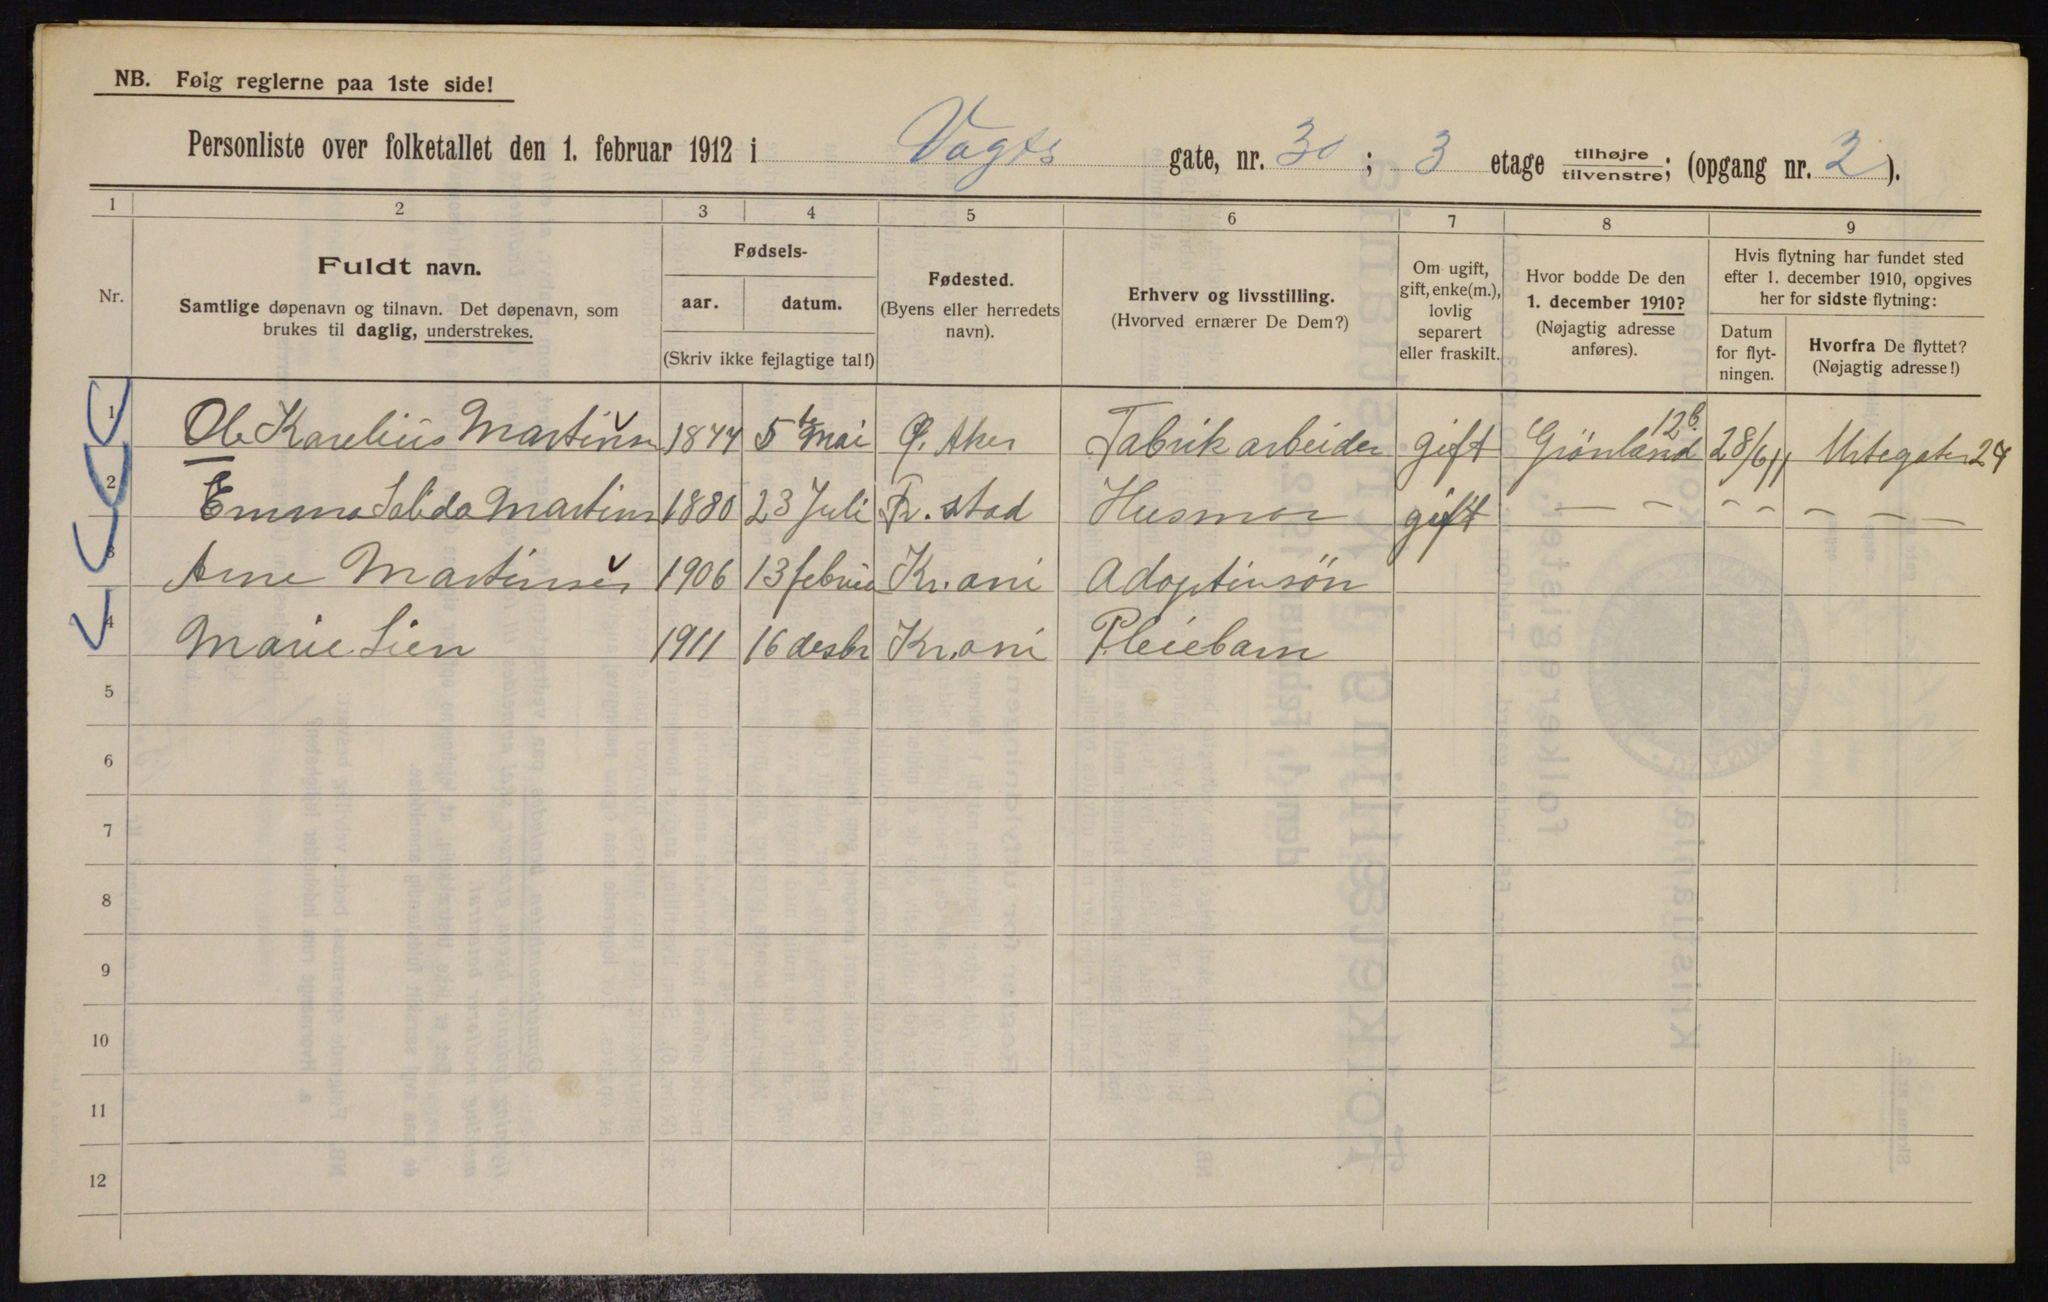 NB. Følg reglerne paa 1ste side!
Personliste over folketallet den 1. februar 1912 i Vogts gate, nr. 30 ; 3 etage tilhøjre tilvenstre; (opgang nr. 2 ).
1 2 3 4 5 6 7 8 9
Nr.
Fuldt navn.
Samtlige døpenavn og tilnavn. Det døpenavn, som
brukes til daglig, understrekes.
Fødsels-
aar. datum.
(Skriv ikke fejlagtige tal!)
Fødested.
(Byens eller herredets
navn).
Erhverv og livsstilling.
(Hvorved ernærer De Dem?)
Om ugift,
gift, enke(m.),
lovlig
separert
eller fraskilt.
Hvor bodde De den
1. december 1910?
(Nøjagtig adresse
anføres).
Hvis flytning har fundet sted
efter 1. december 1910, opgives
her for sidste flytning:
Datum
for flyt-
ningen.
Hvorfra De flyttet?
(Nøjagtig adresse!)
1 Ole Karelius Martinsen 1877 5te Mai Ø. Aker Fabrik arbeider gift Grönland 12b. 28/6 11 Urtegaten 24
2 Emma Martinsen 1880 23 Juli Fr. stad Husmor gift — — — — — — — —
3 Arne Martinsen 1906 13 februa Kr.ani Adoptivsön
4 Marie Lien 1911 16 desbr Kr.ani Pleiebarn
5
6
7
8
9
10
11
12